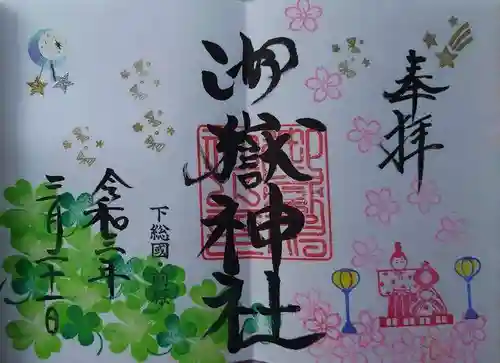 奉拝
御嶽神社
下総國
令和二年
三月二十一日